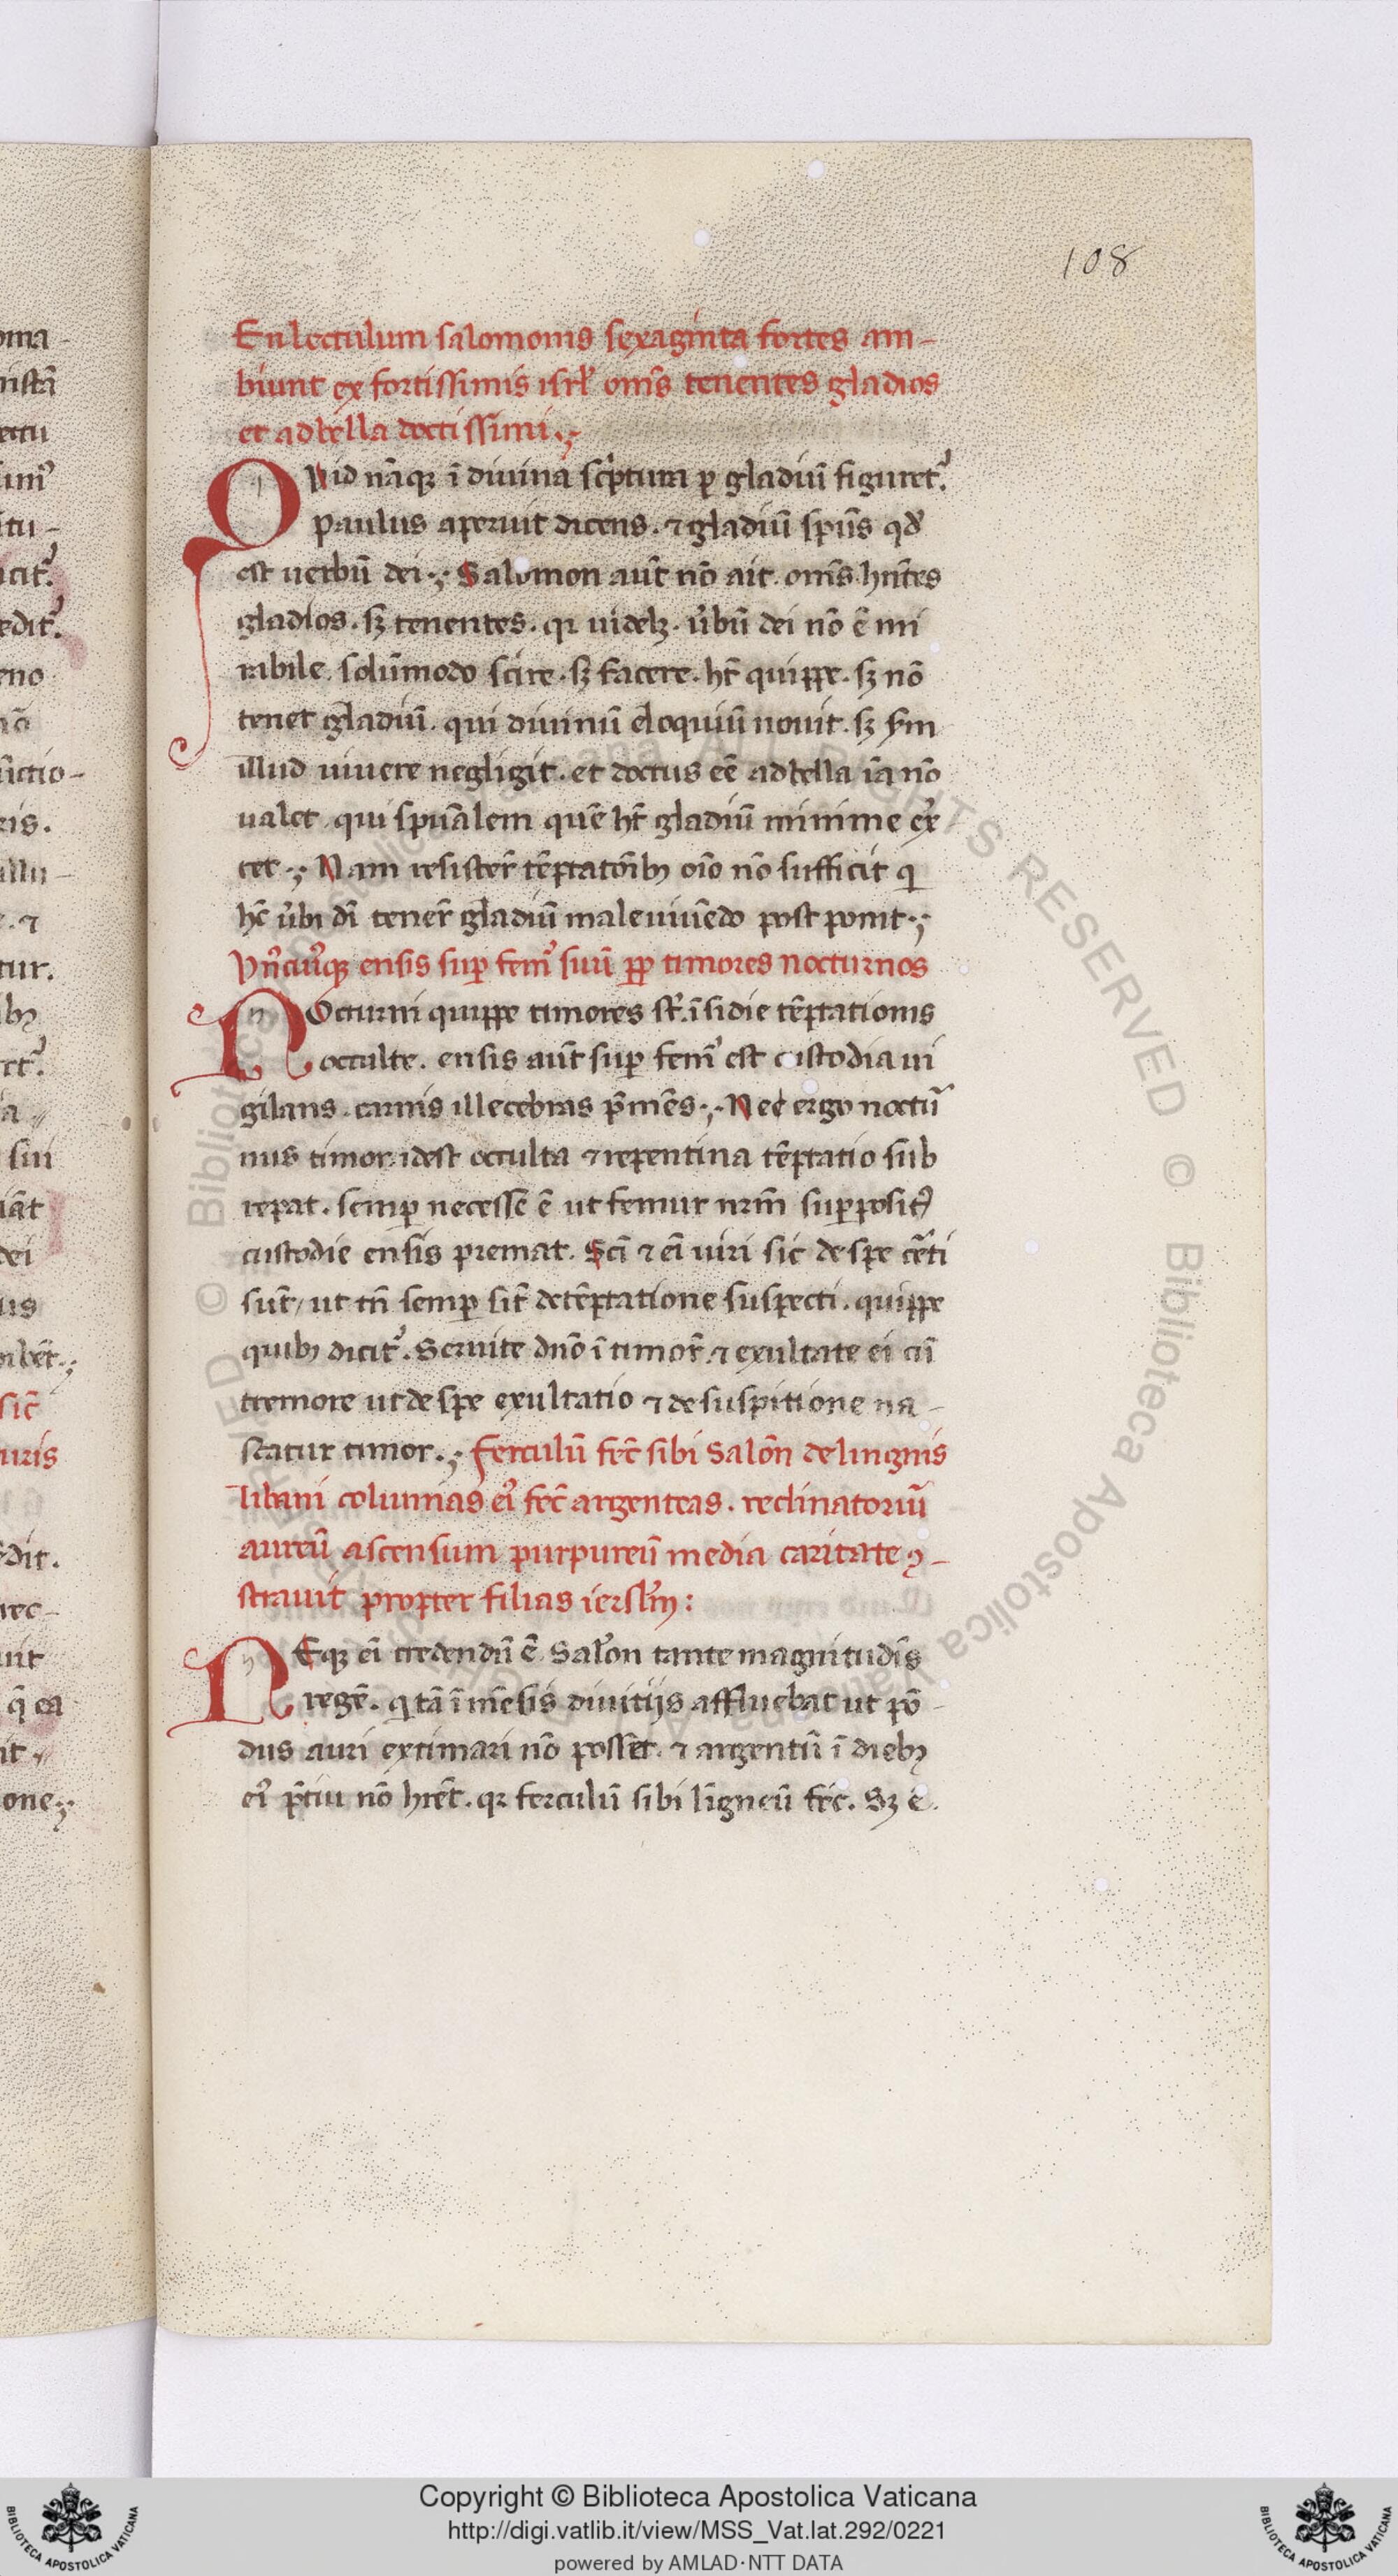 108
En lectulum salomonis sexaginta fortes am-
biunt ex fortissimis isrl' om̄s tenentes gladios
et ad bella doctissimi.;
QVid nāqꝫ ī diuina sc̓ptura ꝑ gladiū figuret᷒.
paulus aperuit dicens. ⁊ gladiū sp̄us qd̓
est uerbū dei.; Salomon aut̄ nō ait. om̄s hn̄tes
gladios. sꝫ tenentes. qꝛ uidelꝫ. u̓bū dei nō ē mi
rabile solūmodo scire. sꝫ facere. ht̄ quippe. sꝫ nō
tenet gladiū. qui diuinū eloquiū nouit. sꝫ sm̄
illud uiuere negligit. et doctus eē ad bella iā nō
ualet qui spuālem quē ht̄ gladiū minime ex̓
cet.; Nam resister̄ tēptatōībꝫ oīo nō sufficit q
hc̄ u̓bi dī tener̄ gladiū male uiuēdo postponit.;
Vn̄cuiꝰqꝫ ensis suꝑ femꝰ suū ꝓꝑ timores nocturnos
NOcturni quippe timores st̄. īsidie tēptationis
occulte. ensis aut̄ suꝑ femꝰ est custodia ui
gilans. carnis illecebras p̄mēs.; Nec ergo noctu᷒
nus timor. idest occulta ⁊ repentina tēptatio sub
repat. semꝑ necesse ē ut femur nrm̄ suꝑpositꝰ
custodie ensis premat. Sci ⁊ eī uiri sic de spe cēti
sūt, ut tn̄ semꝑ sīt de tēptatione suspecti. quippe
quibꝫ dicit᷒. Seruite dn̄o ī timor̄ ⁊ exultate ei cū
tremore ut de spe exultatio ⁊ de suspitione na-
scatur timor.; ferculū fec̄ sibi Salōn de lingnis
libani columnas eiꝰ fec̄ argenteas. reclinatoriū
aureū ascensum purpureū media caritate ꝯ-
strauit propter filias ierslm̄:
NEqꝫ eī credendū ē Salōn tante magnitudīs
regē. q tā īmēsis diuitijs affluebat ut pō-
dus auri extimari nō posset. ⁊ argentū ī diebꝫ
eiꝰ p̄tiu nō hrēt. qꝛ ferculū sibi līgneū fec̄. Sꝫ ē.
Copyright © Biblioteca Apostolica Vaticana
http://digi.vatlib.it/view/MSS_Vat.lat.292/0221
powered by AMLAD·NTT DATA